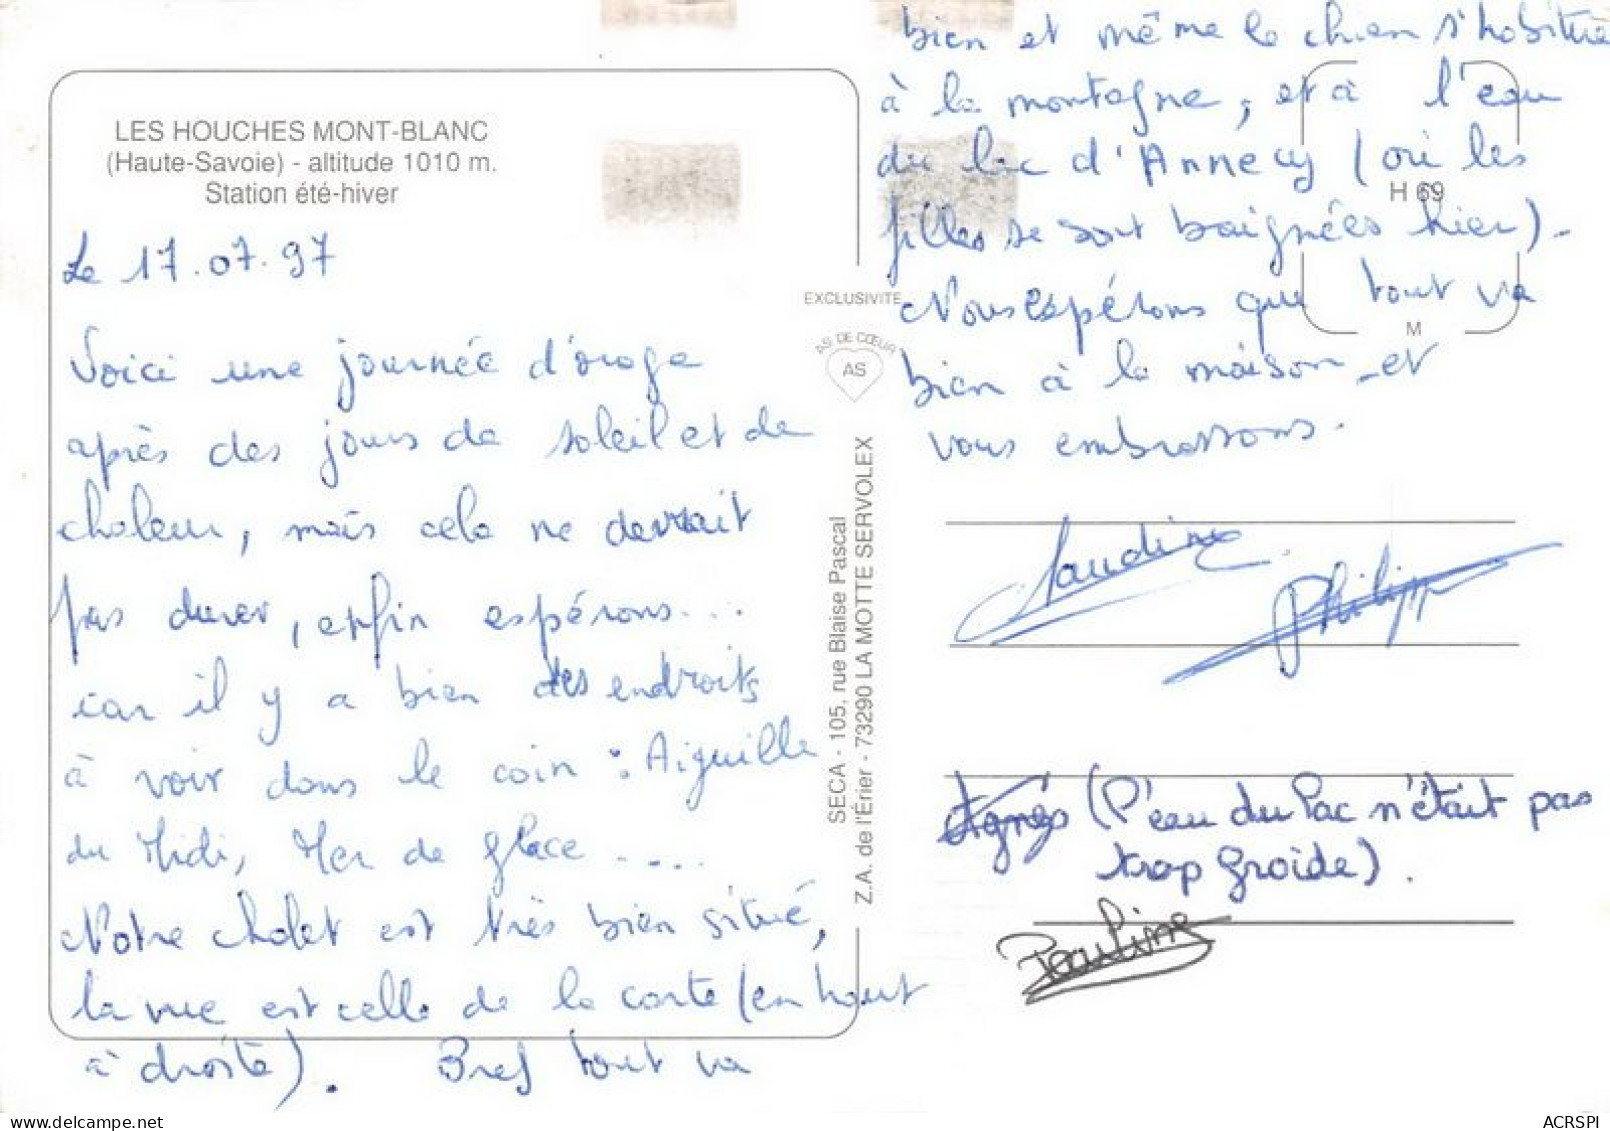 LES HOUCHES MONT-BLANC
(Haute-Savoie) - altitude 1010 m.
Station été-hiver
Le 17.07.97
Voici une journée d'orage
après des jours de soleil et de
chaleur, mais cela ne devrait
pas durer, enfin espérons...
car il y a bien des endroits
à voir dans le coin : Aiguille
du Midi, Mer de glace ....
Notre chalet est très bien situé,
la vue est celle de la carte (en haut
à droite). Bref tout va
bien et même le chien s'habitue
à la montagne, et à l'eau
du lac d'Annecy (où les
filles se sont baignées hier).
Nous espérons que tout va
bien à la maison et
vous embrassons.
Claudine
Philippe
Agnés (l'eau du lac n'était pas
trop froide).
Pauline
EXCLUSIVITE
AS DE CŒUR
AS
H 69
M
SECA - 105, rue Blaise Pascal
Z.A. de l'Érier - 73290 LA MOTTE SERVOLEX
ACRSPI